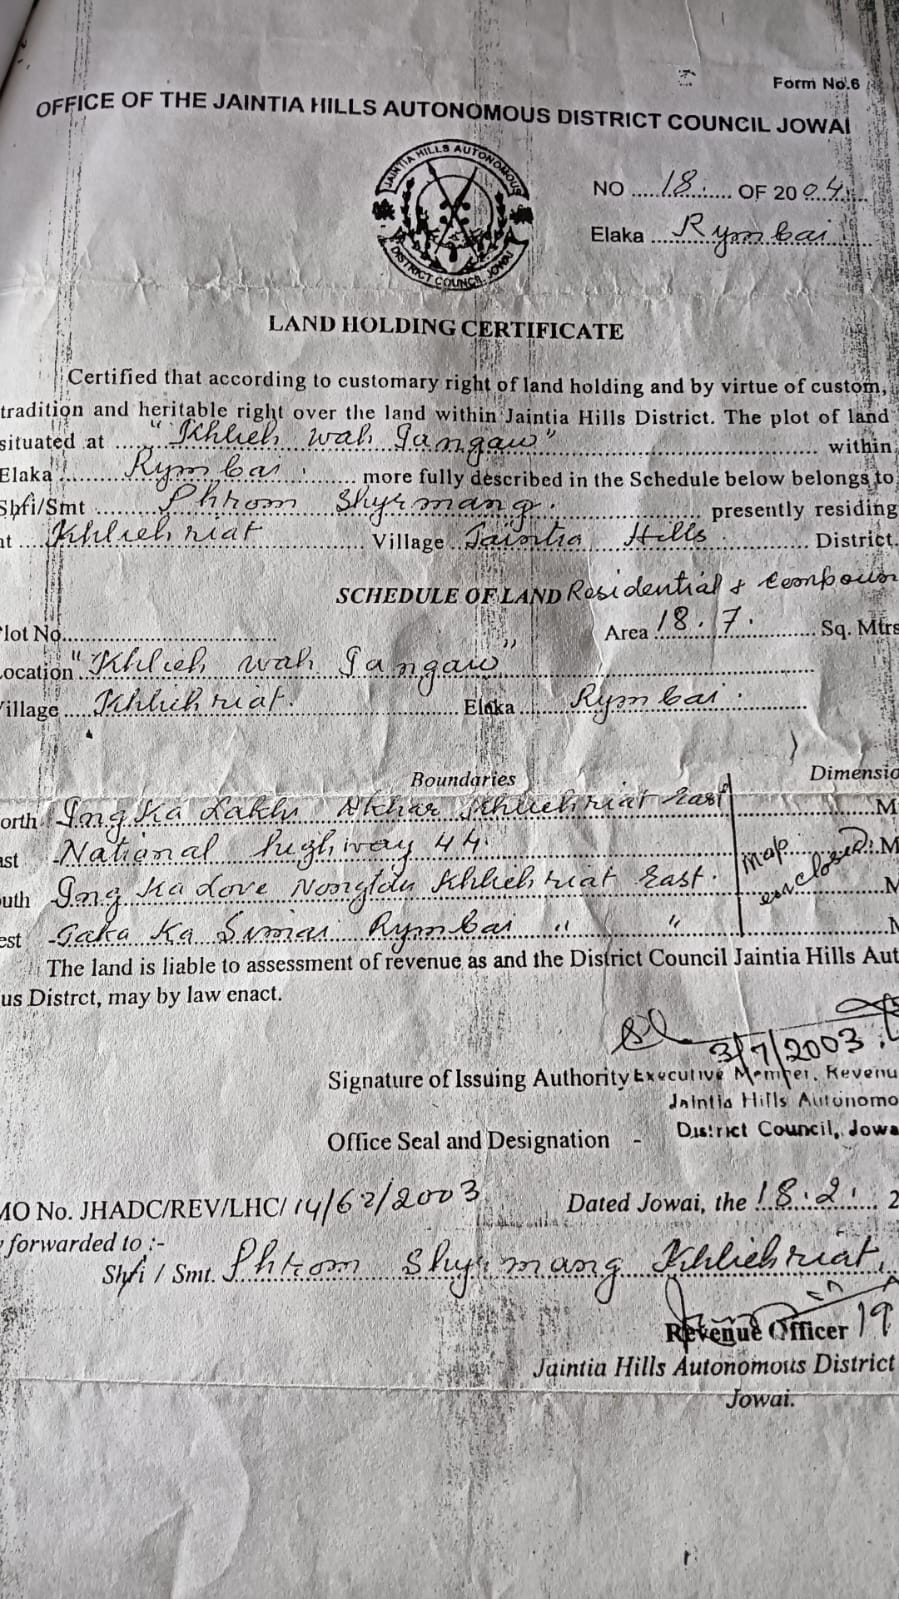 Form No.6
OFFICE OF THE JAINTIA HILLS AUTONOMOUS DISTRICT COUNCIL JOWAI
JAINTIA HILLS AUTONOMOUS
DISTRICT COUNCIL, JOWAI
NO .....18....... OF 2004.....
Elaka ....Rymbai.....
LAND HOLDING CERTIFICATE
Certified that according to customary right of land holding and by virtue of custom,
tradition and heritable right over the land within Jaintia Hills District. The plot of land
situated at ....."Khlieh wah Jangaw"............ within
Elaka .......Rymbai......... more fully described in the Schedule below belongs to
Shri/Smt .........Phrom Shyrmang............ presently residing
at ...Khliehriat............. Village ..Jaintia Hills........... District.
SCHEDULE OF LAND Residential &
Plot No............................ Area 18.7............ Sq. Mtrs
Location "Khlieh wah Jangaw"..................
Village ....Khliehriat............. Elaka .......Rymbai.........
Boundaries Dimensio
orth Ïng Ka Khliehriat East ......... M
ast National highway 44........... M
uth Ïng Ka Love Nongtdu Khliehriat East......... M
est Ka Rymbai " "
map enclosed
The land is liable to assessment of revenue as and the District Council Jaintia Hills Aut
us Distrct, may by law enact.
3/7/2003
Signature of Issuing Authority Executive Member, Revenu
Jaintia Hills Autonomo
Office Seal and Designation - District Council, Jowa
MO No. JHADC/REV/LHC/14/62/2003 Dated Jowai, the 18.2........ 2
forwarded to :-
Shri / Smt. Phrom Shyrmang Khliehriat,
Revenue Officer
Jaintia Hills Autonomous District
Jowai.